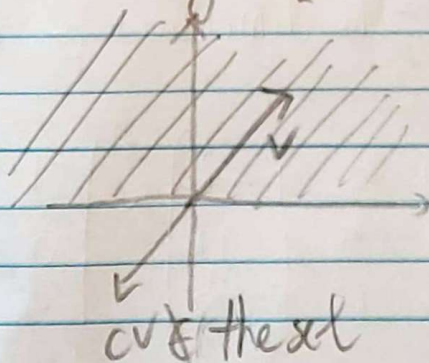 V
cV ∉ the set